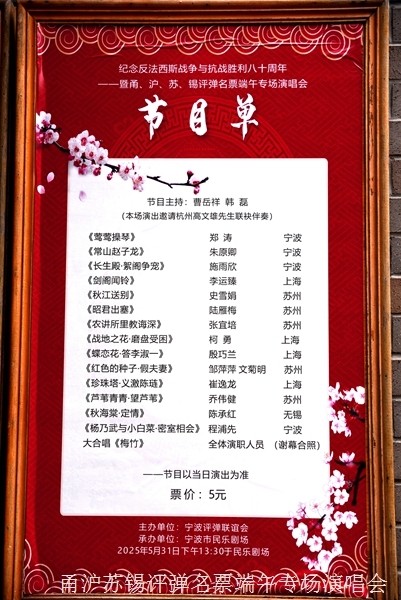 纪念反法西斯战争与抗战胜利八十周年
——暨甬、沪、苏、锡评弹名票端午专场演唱会
节目单
节目主持：曹岳祥 韩磊
（本场演出邀请杭州高文雄先生联袂伴奏）
《莺莺操琴》 郑涛 宁波
《常山赵子龙》 朱原卿 宁波
《长生殿·絮阁争宠》 施雨欣 宁波
《剑阁闻铃》 李运臻 上海
《秋江送别》 史雪娟 苏州
《昭君出塞》 陆雁梅 苏州
《农讲所里教诲深》 张宜培 苏州
《战地之花·磨盘受困》 柯勇 上海
《蝶恋花·答李淑一》 殷巧兰 上海
《红色的种子·假夫妻》 邹萍萍 文菊明 苏州
《珍珠塔·义激陈琏》 崔逸龙 上海
《芦苇青青·望芦苇》 乔伟健 苏州
《秋海棠·定情》 陈承红 无锡
《杨乃武与小白菜·密室相会》 程浦先 宁波
大合唱《梅竹》 全体演职人员 （谢幕合照）
——节目以当日演出为准
票价：5元
主办单位：宁波评弹联谊会
承办单位：宁波市民乐剧场
2025年5月31日下午13:30于民乐剧场
甬沪苏锡评弹名票端午专场演唱会